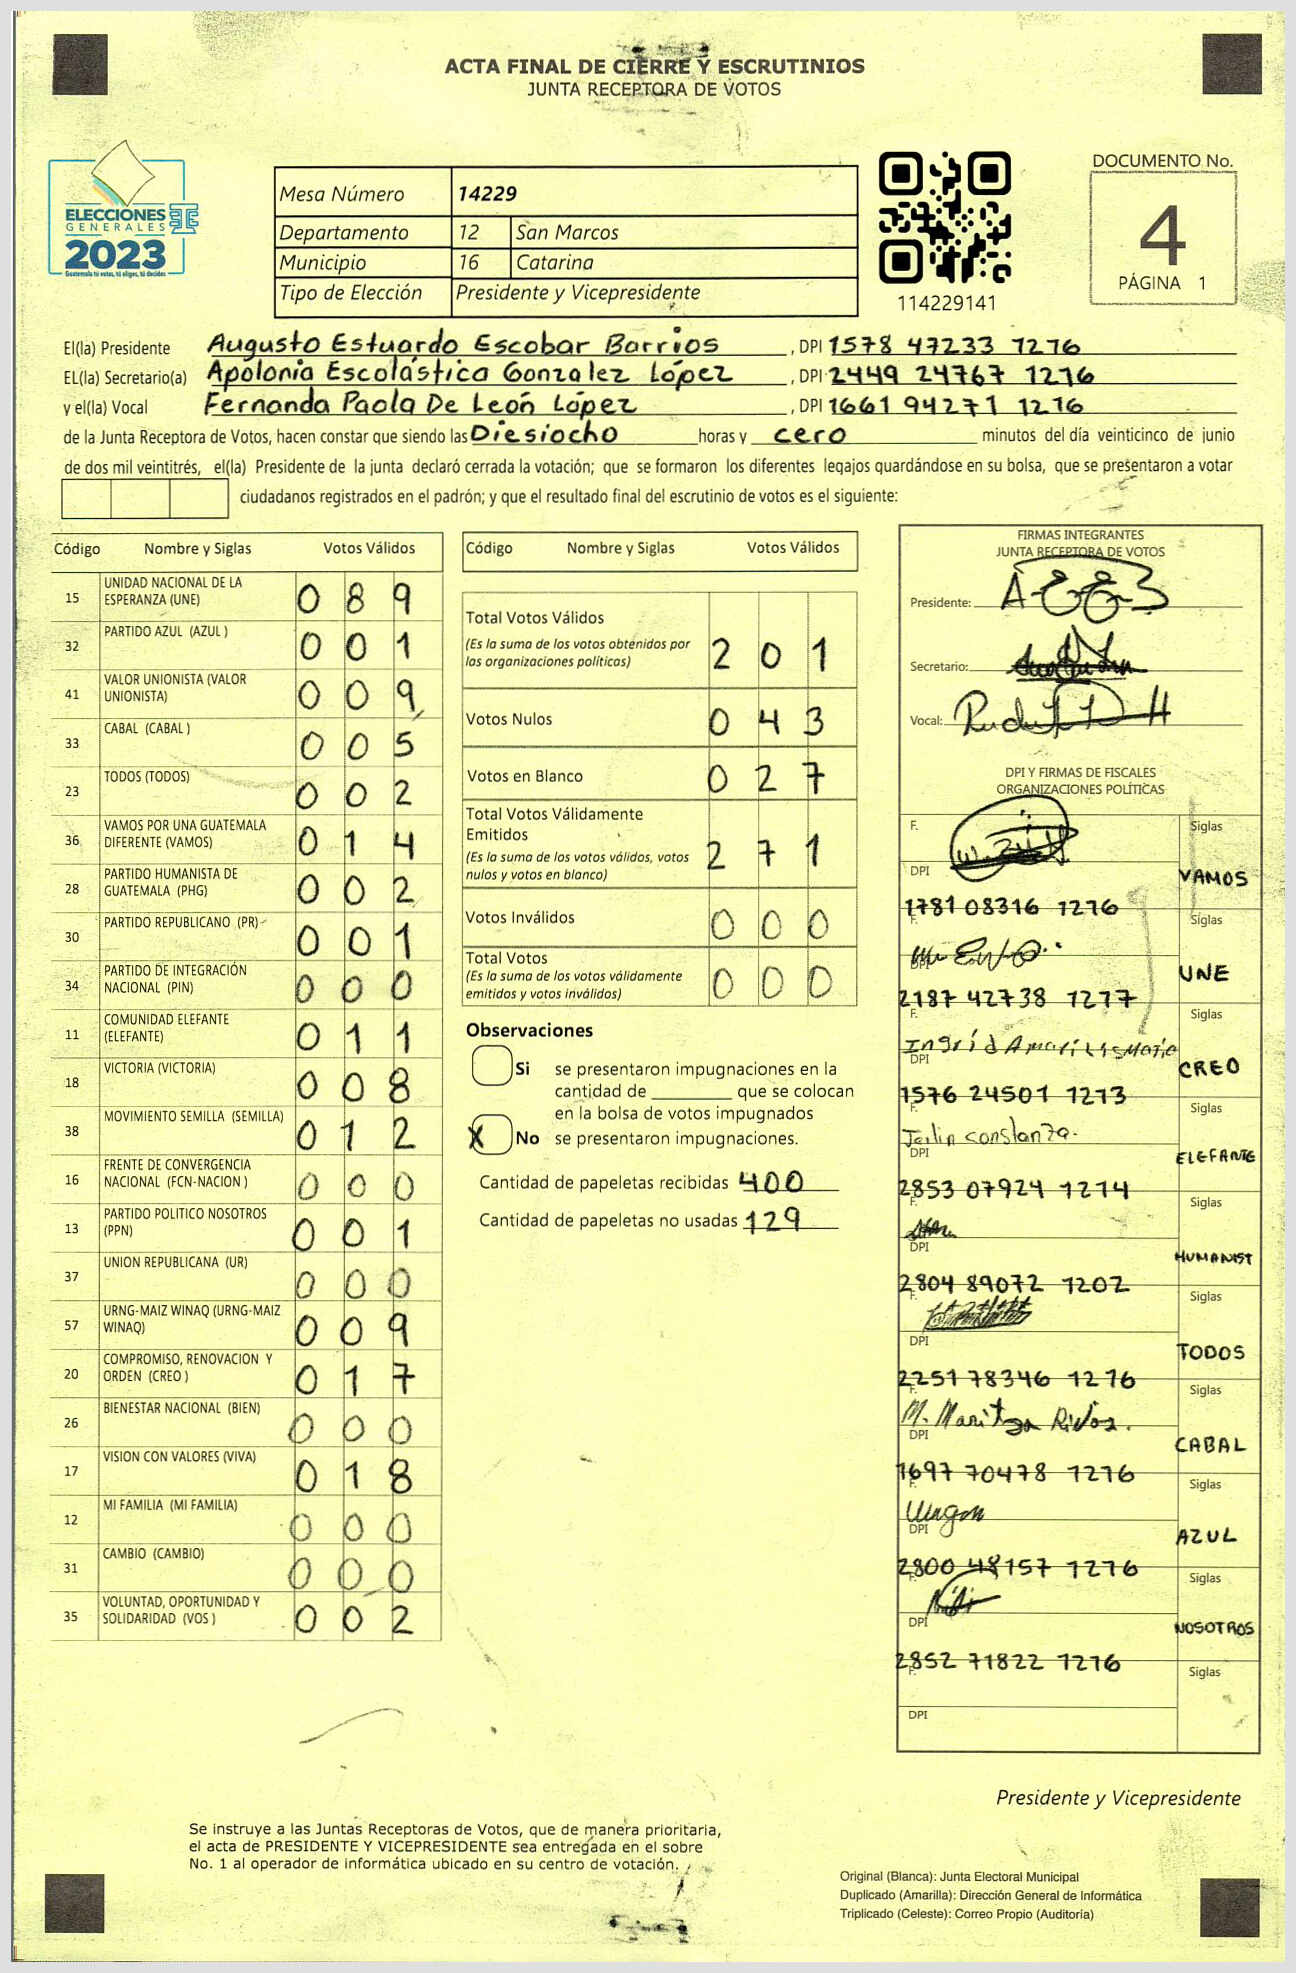 ACTA FINAL DE CIERRE Y ESCRUTINIOS
JUNTA RECEPTORA DE VOTOS
ELECCIONES
GENERALES
2023
Guatemala tú votas, tú eliges, tú decides
Mesa Número 14229
Departamento 12 San Marcos
Municipio 16 Catarina
Tipo de Elección Presidente y Vicepresidente
114229141
DOCUMENTO No.
4
PÁGINA 1
El(la) Presidente Augusto Estuardo Escobar Barrios, DPI 1578 47233 1216
EL(la) Secretario(a) Apolonia Escolástica Gonzalez López, DPI 2449 24767 1216
y el(la) Vocal Fernanda Paola De León López, DPI 1661 94271 1216
de la Junta Receptora de Votos, hacen constar que siendo las Diesiocho horas y cero minutos del día veinticinco de junio
de dos mil veintitrés, el(la) Presidente de la junta declaró cerrada la votación; que se formaron los diferentes legajos quardándose en su bolsa, que se presentaron a votar
ciudadanos registrados en el padrón; y que el resultado final del escrutinio de votos es el siguiente:
Código Nombre y Siglas Votos Válidos
15 UNIDAD NACIONAL DE LA ESPERANZA (UNE) 0 8 9
32 PARTIDO AZUL (AZUL ) 0 0 1
41 VALOR UNIONISTA (VALOR UNIONISTA) 0 0 9
33 CABAL (CABAL ) 0 0 5
23 TODOS (TODOS) 0 0 2
36 VAMOS POR UNA GUATEMALA DIFERENTE (VAMOS) 0 1 4
28 PARTIDO HUMANISTA DE GUATEMALA (PHG) 0 0 2
30 PARTIDO REPUBLICANO (PR) 0 0 1
34 PARTIDO DE INTEGRACIÓN NACIONAL (PIN) 0 0 0
11 COMUNIDAD ELEFANTE (ELEFANTE) 0 1 1
18 VICTORIA (VICTORIA) 0 0 8
38 MOVIMIENTO SEMILLA (SEMILLA) 0 1 2
16 FRENTE DE CONVERGENCIA NACIONAL (FCN-NACION ) 0 0 0
13 PARTIDO POLITICO NOSOTROS (PPN) 0 0 1
37 UNION REPUBLICANA (UR) 0 0 0
57 URNG-MAIZ WINAQ (URNG-MAIZ WINAQ) 0 0 9
20 COMPROMISO, RENOVACION Y ORDEN (CREO ) 0 1 7
26 BIENESTAR NACIONAL (BIEN) 0 0 0
17 VISION CON VALORES (VIVA) 0 1 8
12 MI FAMILIA (MI FAMILIA) 0 0 0
31 CAMBIO (CAMBIO) 0 0 0
35 VOLUNTAD, OPORTUNIDAD Y SOLIDARIDAD (VOS ) 0 0 2
Código Nombre y Siglas Votos Válidos
Total Votos Válidos 2 0 1
(Es la suma de los votos obtenidos por
las organizaciones políticas)
Votos Nulos 0 4 3
Votos en Blanco 0 2 7
Total Votos Válidamente
Emitidos 2 7 1
(Es la suma de los votos válidos, votos
nulos y votos en blanco)
Votos Inválidos 0 0 0
Total Votos 0 0 0
(Es la suma de los votos válidamente
emitidos y votos inválidos)
Observaciones
Si se presentaron impugnaciones en la
cantidad de ________ que se colocan
en la bolsa de votos impugnados
X No se presentaron impugnaciones.
Cantidad de papeletas recibidas 400
Cantidad de papeletas no usadas 129
FIRMAS INTEGRANTES
JUNTA RECEPTORA DE VOTOS
Presidente:
Secretario:
Vocal:
DPI Y FIRMAS DE FISCALES
ORGANIZACIONES POLÍTICAS
F. Siglas
DPI VAMOS
1781 08316 1216
F. Siglas
DPI UNE
2187 42738 1217
F. Siglas
Ingrid
DPI CREO
1576 24501 1213
F. Siglas
constanza.
DPI ELEFANTE
2853 07924 1214
F. Siglas
DPI HUMANIST
2804 89072 1202
F. Siglas
DPI TODOS
2251 78346 1216
F. Siglas
M. Maritza Rivas.
DPI CABAL
1697 70478 1216
F. Siglas
DPI AZUL
2800 48157 1216
F. Siglas
DPI NOSOTROS
2852 71822 1216
F. Siglas
DPI
Presidente y Vicepresidente
Se instruye a las Juntas Receptoras de Votos, que de manera prioritaria,
el acta de PRESIDENTE Y VICEPRESIDENTE sea entregada en el sobre
No. 1 al operador de informática ubicado en su centro de votación.
Original (Blanca): Junta Electoral Municipal
Duplicado (Amarilla): Dirección General de Informática
Triplicado (Celeste): Correo Propio (Auditoría)